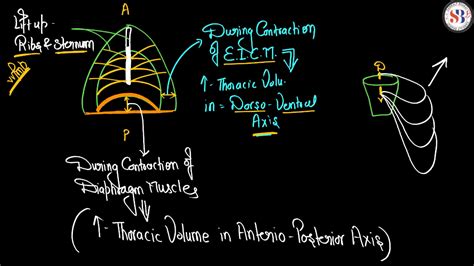 A
Lift up
Ribs & Sternum
During Contraction
of E.I.C.M.
↑ Thoracic Volu.
in = Dorso-Ventral
Axis
P
During Contraction of
Diaphragm Muscles
(↑- Thoracic Volume in Anterio-Posterior Axis)
D
SB